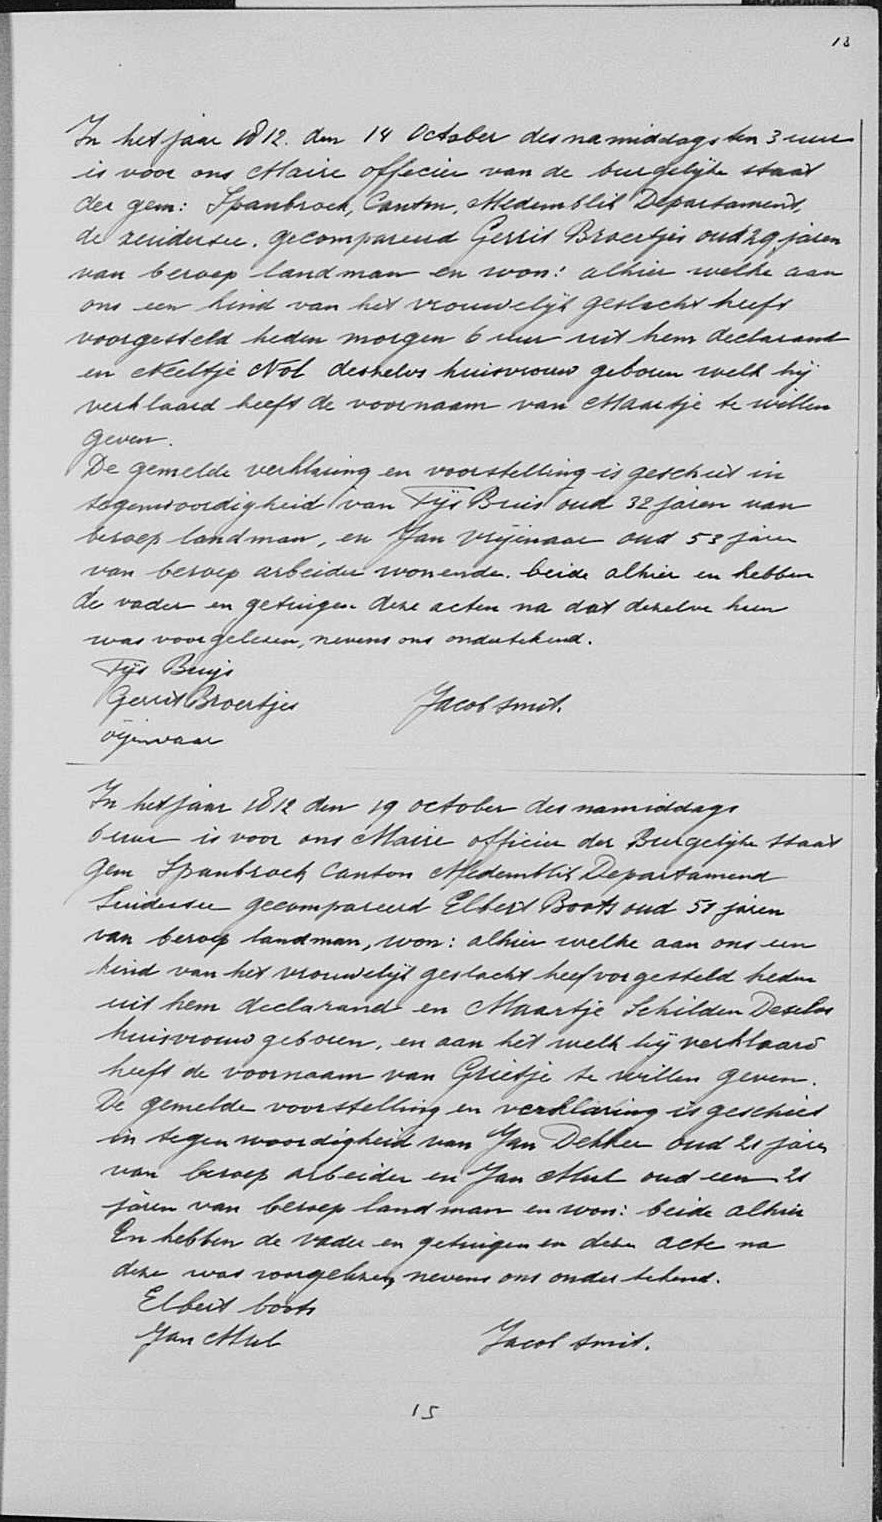 18
In het jaar 1812. den 14 October des namiddags ten 3 uur
is voor ons Maire officier van de burgelijke staat
der gem: Spanbroek, Canton, Medemblik Departament,
de zuidersee. gecompareerd Gerrit Broertjes oud 29 jaren
van beroep landman en won: alhier welke aan
ons een kind van het vrouwelijk geslacht heeft
voorgesteld heden morgen 6 uur uit hem declarand
en Neeltje Nol deszelvs huisvrouw geboren welk hij
verklaard heeft de voornaam van Maartje te willen
geven.
De gemelde verklaring en voorstelling is geschiet in
tegenwoordigheid van Tijs Bruis oud 32 jaren van
beroep landman, en Jan Vrijenaar oud 53 jaren
van beroep arbeider wonende. beide alhier en hebben
de vader en getuigen deze acten na dat dezelve hun
was voorgelesen, nevens ons ondertekend.
Tijs Buijs
Gerrit Broertjes Jacob Smit.
In het jaar 1812 den 19 october des namiddags
6 uur is voor ons Maire officier der Burgelijke Staat
Gem Spanbroek Canton Medemblik Departamend
Suidersee gecompareerd Elbert Boots oud 51 jaren
van beroep landman, won: alhier welke aan ons een
kind van het vrouwelijk geslacht heef vorgesteld heden
uit hem declarand en Maartje Schilden Deselvs
huisvrouw geboren, en aan het welk hij verklaard
heeft de voornaam van Grietje te willen geven.
De gemelde voorstelling en verklaring is geschied
in tegenwoordigheid van Jan Dekker oud 21 jaren
van beroep arbeider en Jan Mul oud een 21
jaren van beroep landman en won: beide alhier
En hebben de vader en getuigen en deze acte na
deze was voorgelezen, nevens ons onder tekend.
Elbert boots
Jan Mul Jacob Smit.
15